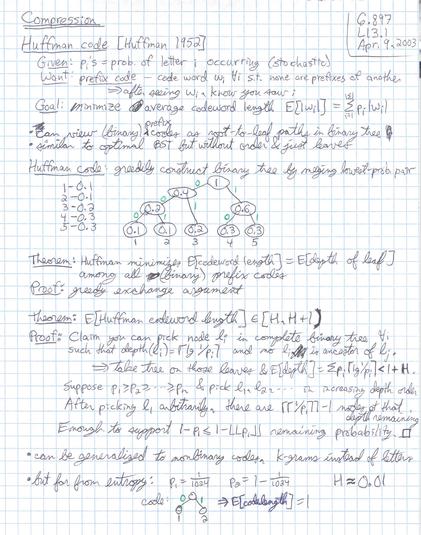 Compression
6.897
L13.1
Apr. 9, 2003
Huffman code [Huffman 1952]
Given: pᵢ's = prob. of letter i occurring (stochastic)
Want: prefix code — code word wᵢ ∀i s.t. none are prefixes of another
⇒ after seeing wᵢ, know you saw i
Goal: minimize average codeword length E[|wᵢ|] = Σ pᵢ|wᵢ|
• Can view (binary) prefix codes as root-to-leaf paths in binary tree
• similar to optimal BST but without order & just leaves
Huffman code: greedily construct binary tree by merging lowest-prob. pair
1-0.1
2-0.1
3-0.2
4-0.3
5-0.3
1
0 1
0.4
0 1
0.2 0.6
0 1 0 1
0.1 0.1 0.2 0.3 0.3
1 2 3 4 5
Theorem: Huffman minimizes E[codeword length] = E[depth of leaf]
among all (binary) prefix codes
Proof: greedy exchange argument
Theorem: E[Huffman codeword length] ∈ [H, H+1)
Proof: Claim you can pick node lᵢ in complete binary tree ∀i
such that depth(lᵢ) = ⌈lg 1/pᵢ⌉ and no lᵢ is ancestor of lⱼ.
⇒ Take tree on those leaves & E[depth] = Σpᵢ⌈lg 1/pᵢ⌉ < 1+H.
Suppose p₁≥p₂≥···≥pₙ & pick l₁, l₂, ··· in increasing depth order
After picking l₁ arbitrarily, there are ⌈⌈1/p₁⌉⌉-1 nodes of that
depth remaining
Enough to support 1-p₁ ≤ 1-⌊⌊p₁⌋⌋ remaining probability. □
• can be generalized to nonbinary codes, k-grams instead of letters
• but far from entropy: p₁ = 1/1024 p₂ = 1 - 1/1024 H ≈ 0.01
code: 0 1 ⇒ E[codelength] = 1
1 2